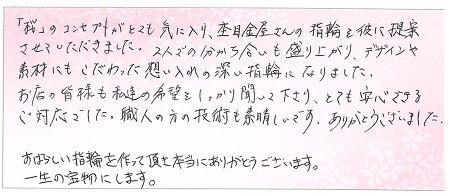 「桜」のコンセプトがとても気に入り、杢目金屋さんの指輪を彼に提案
させていただきました。2人での分かち合いも盛り上がり、デザインや
素材にもこだわった想い入れの深い指輪になりました。
お店の皆様も私達の希望をしっかり聞いて下さり、とても安心できる
ご対応でした。職人の方の技術も素晴しいです。ありがとうございました。
すばらしい指輪を作って頂き本当にありがとうございます。
一生の宝物にします。